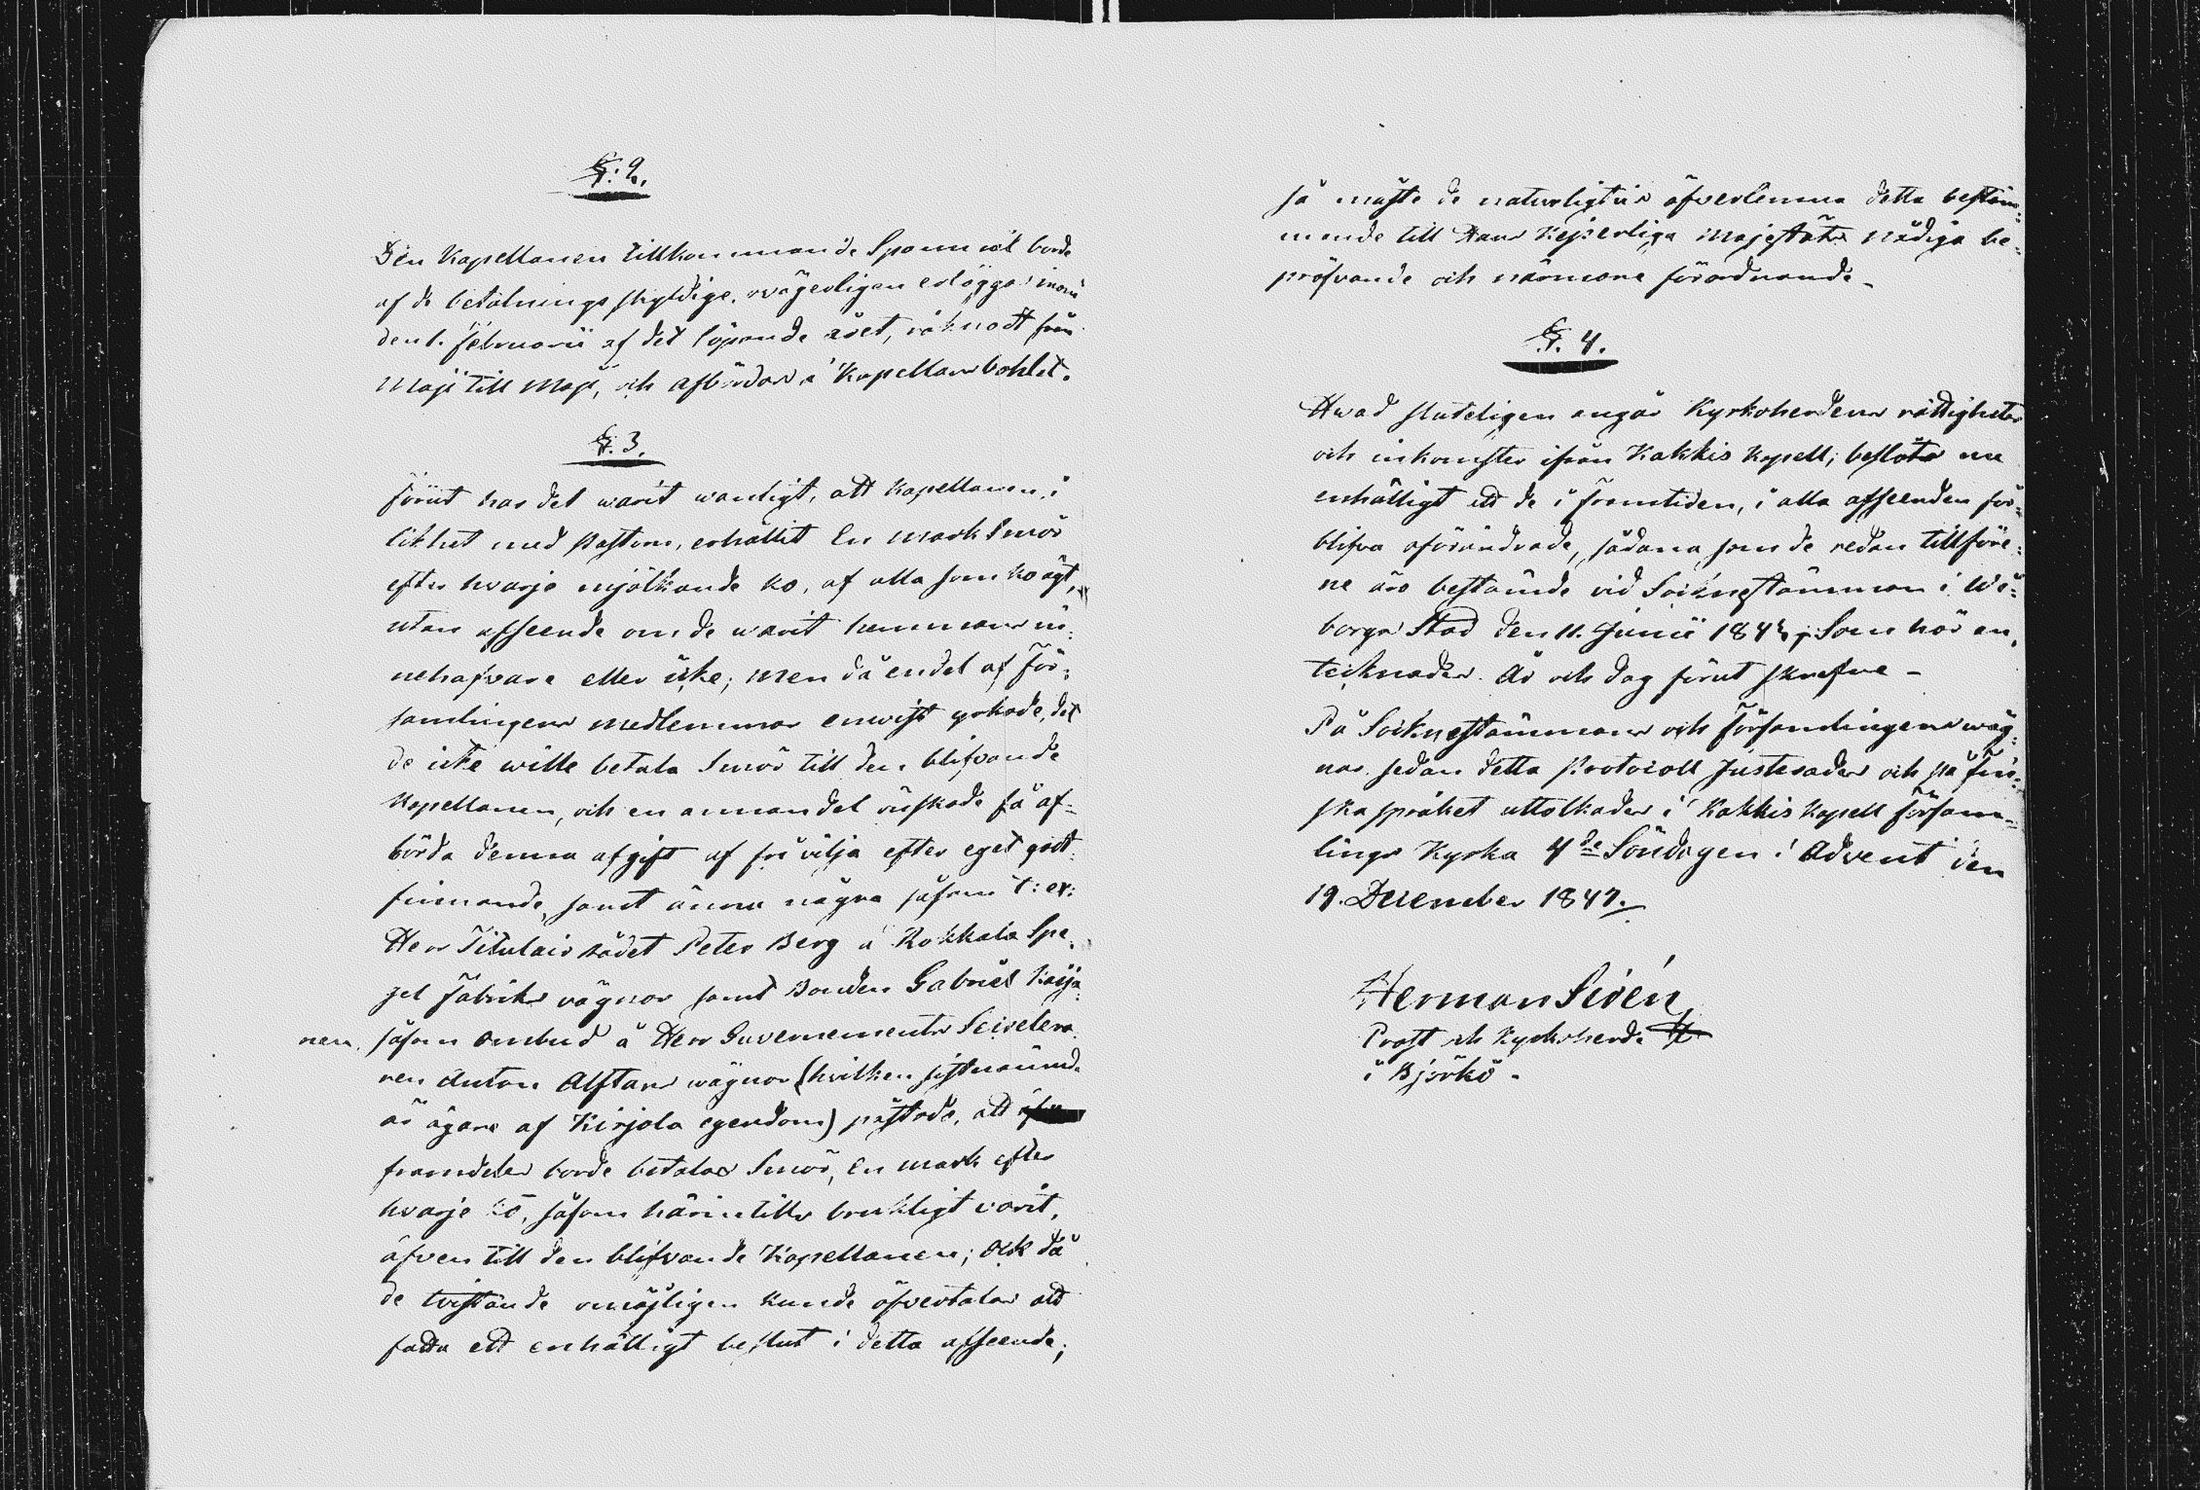 §. 2.
Den Kapellanen tillkommande Spannmål borde
af de betalningsskyldige, ovägerligen erläggas inom
den 1. Februarii af det löpande året, räknadt från
Maji till Maji, och afbördas å Kapellansbohlet.
§. 3.
Förut har det warit wanligt, att Kapellanen, i
likhet med Pastorn, erhållit En mark Smör
efter hvarje mjölkande ko, af alla som ko ägt,
utan afseende om de warit hemmans in¬
nehafvare eller icke; men då en del af För¬
samlingens medlemmar enwist yrkade, det
de icke wille betala Smör till den blifvande
Kapellanen, och en annan del önskade få af-
börda denna afgift af fri vilja efter eget godt-
finnande, samt ännu några såsom t: ex:
Herr Titulair rådet Peter Berg å Rokkala Spe¬
gel Fabriks vägnar samt Bonden Gabriel Kaija¬
nen. såsom ombud å Herr Guvernements Secretera¬
ren Anton Alftans wägnar (hvilken sistnämnde
är ägare af Kirjola egendom) påstodo, att
framdeles borde betalas Smör, En mark efter
hvarje ko, såsom härintills brukligt varit,
äfven till den blifvande Kapellanen; Och då
de tvistande omöjligen kunde öfvertalas att
fatta ett enhälligt beslut i detta afseende;
så måste de naturligtvis öfverlemna detta bestäm¬
mande till Hans Kejserliga Majestäts nådiga be¬
pröfvande och närmare förordnande.
§. 4.
Hwad sluteligen angår Kyrkoherdens rättigheter
och inkomster ifrån Kakkis Kapell; beslöts nu
enhälligt att de i framtiden, i alla afseenden för¬
blifva oförändrade, sådana som de redan tillföre¬
ne äro bestämde vid Socknestämman i Wi¬
borgs Stad den 11. Junii 184 Som här an¬
tecknades. År och dag förut skrefne -
På Sockenstämmans och Församlingens wäg¬
nar. sedan detta Protocoll Justerades och på fin¬
ska språket uttolkades i Kakkis Kapell Försam¬
lings Kyrka 4de Söndagen i Advent den
19. December 1847.
Herman Sirén
Prost och Kyrkoherde
i Björkö -